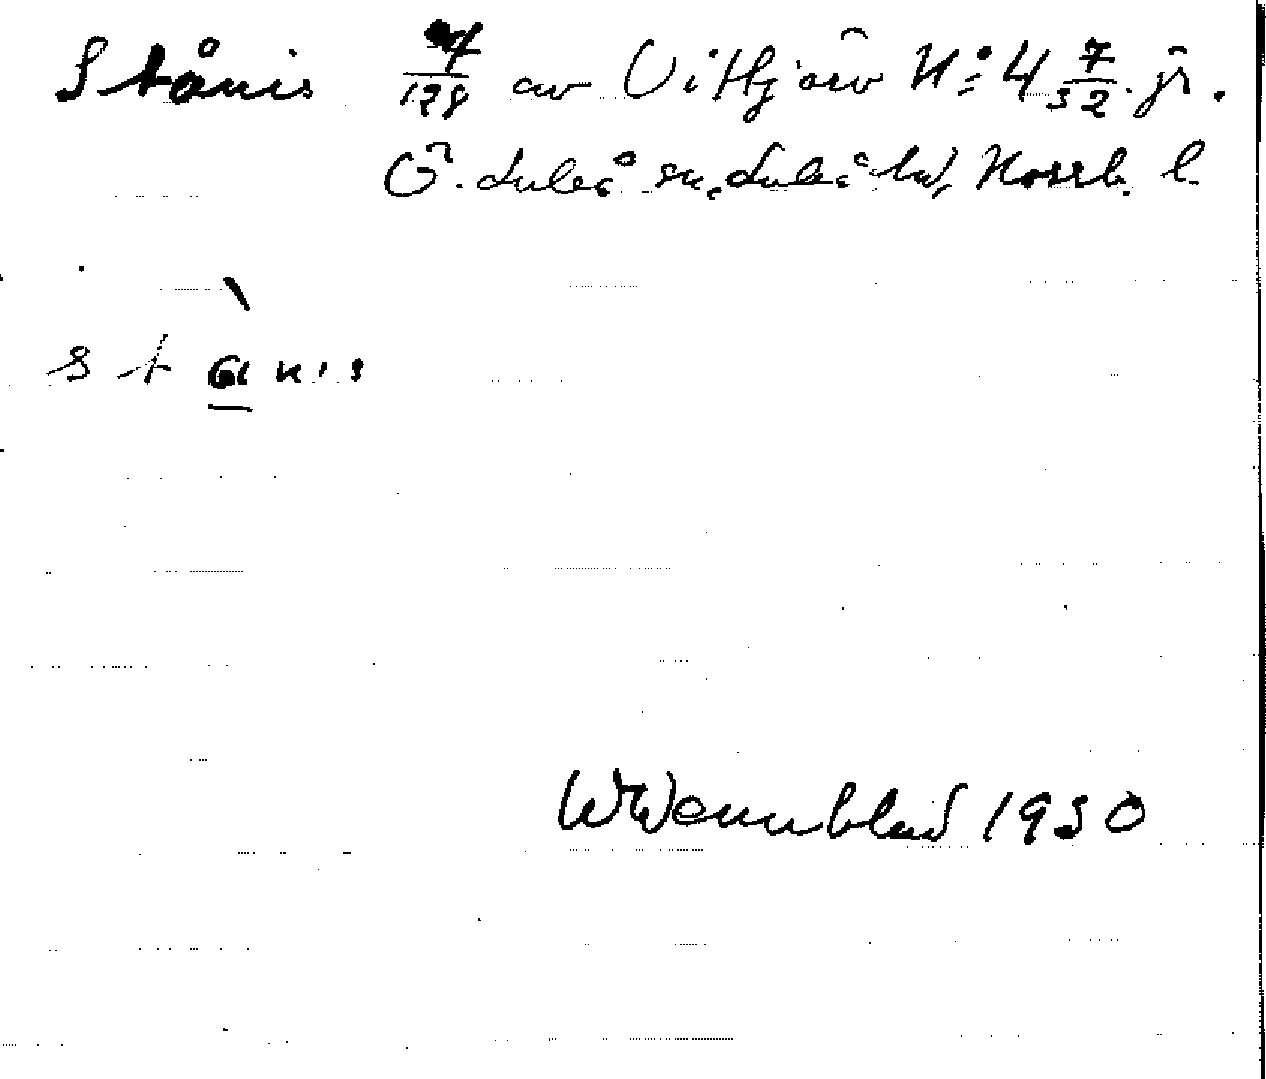 Stånis 7/128 av Vittjärv N:o 4 7/32 jr.
Ö. Luleå sn, Luleå tg, Norrb. l.
stànis
W Wennblad 1930